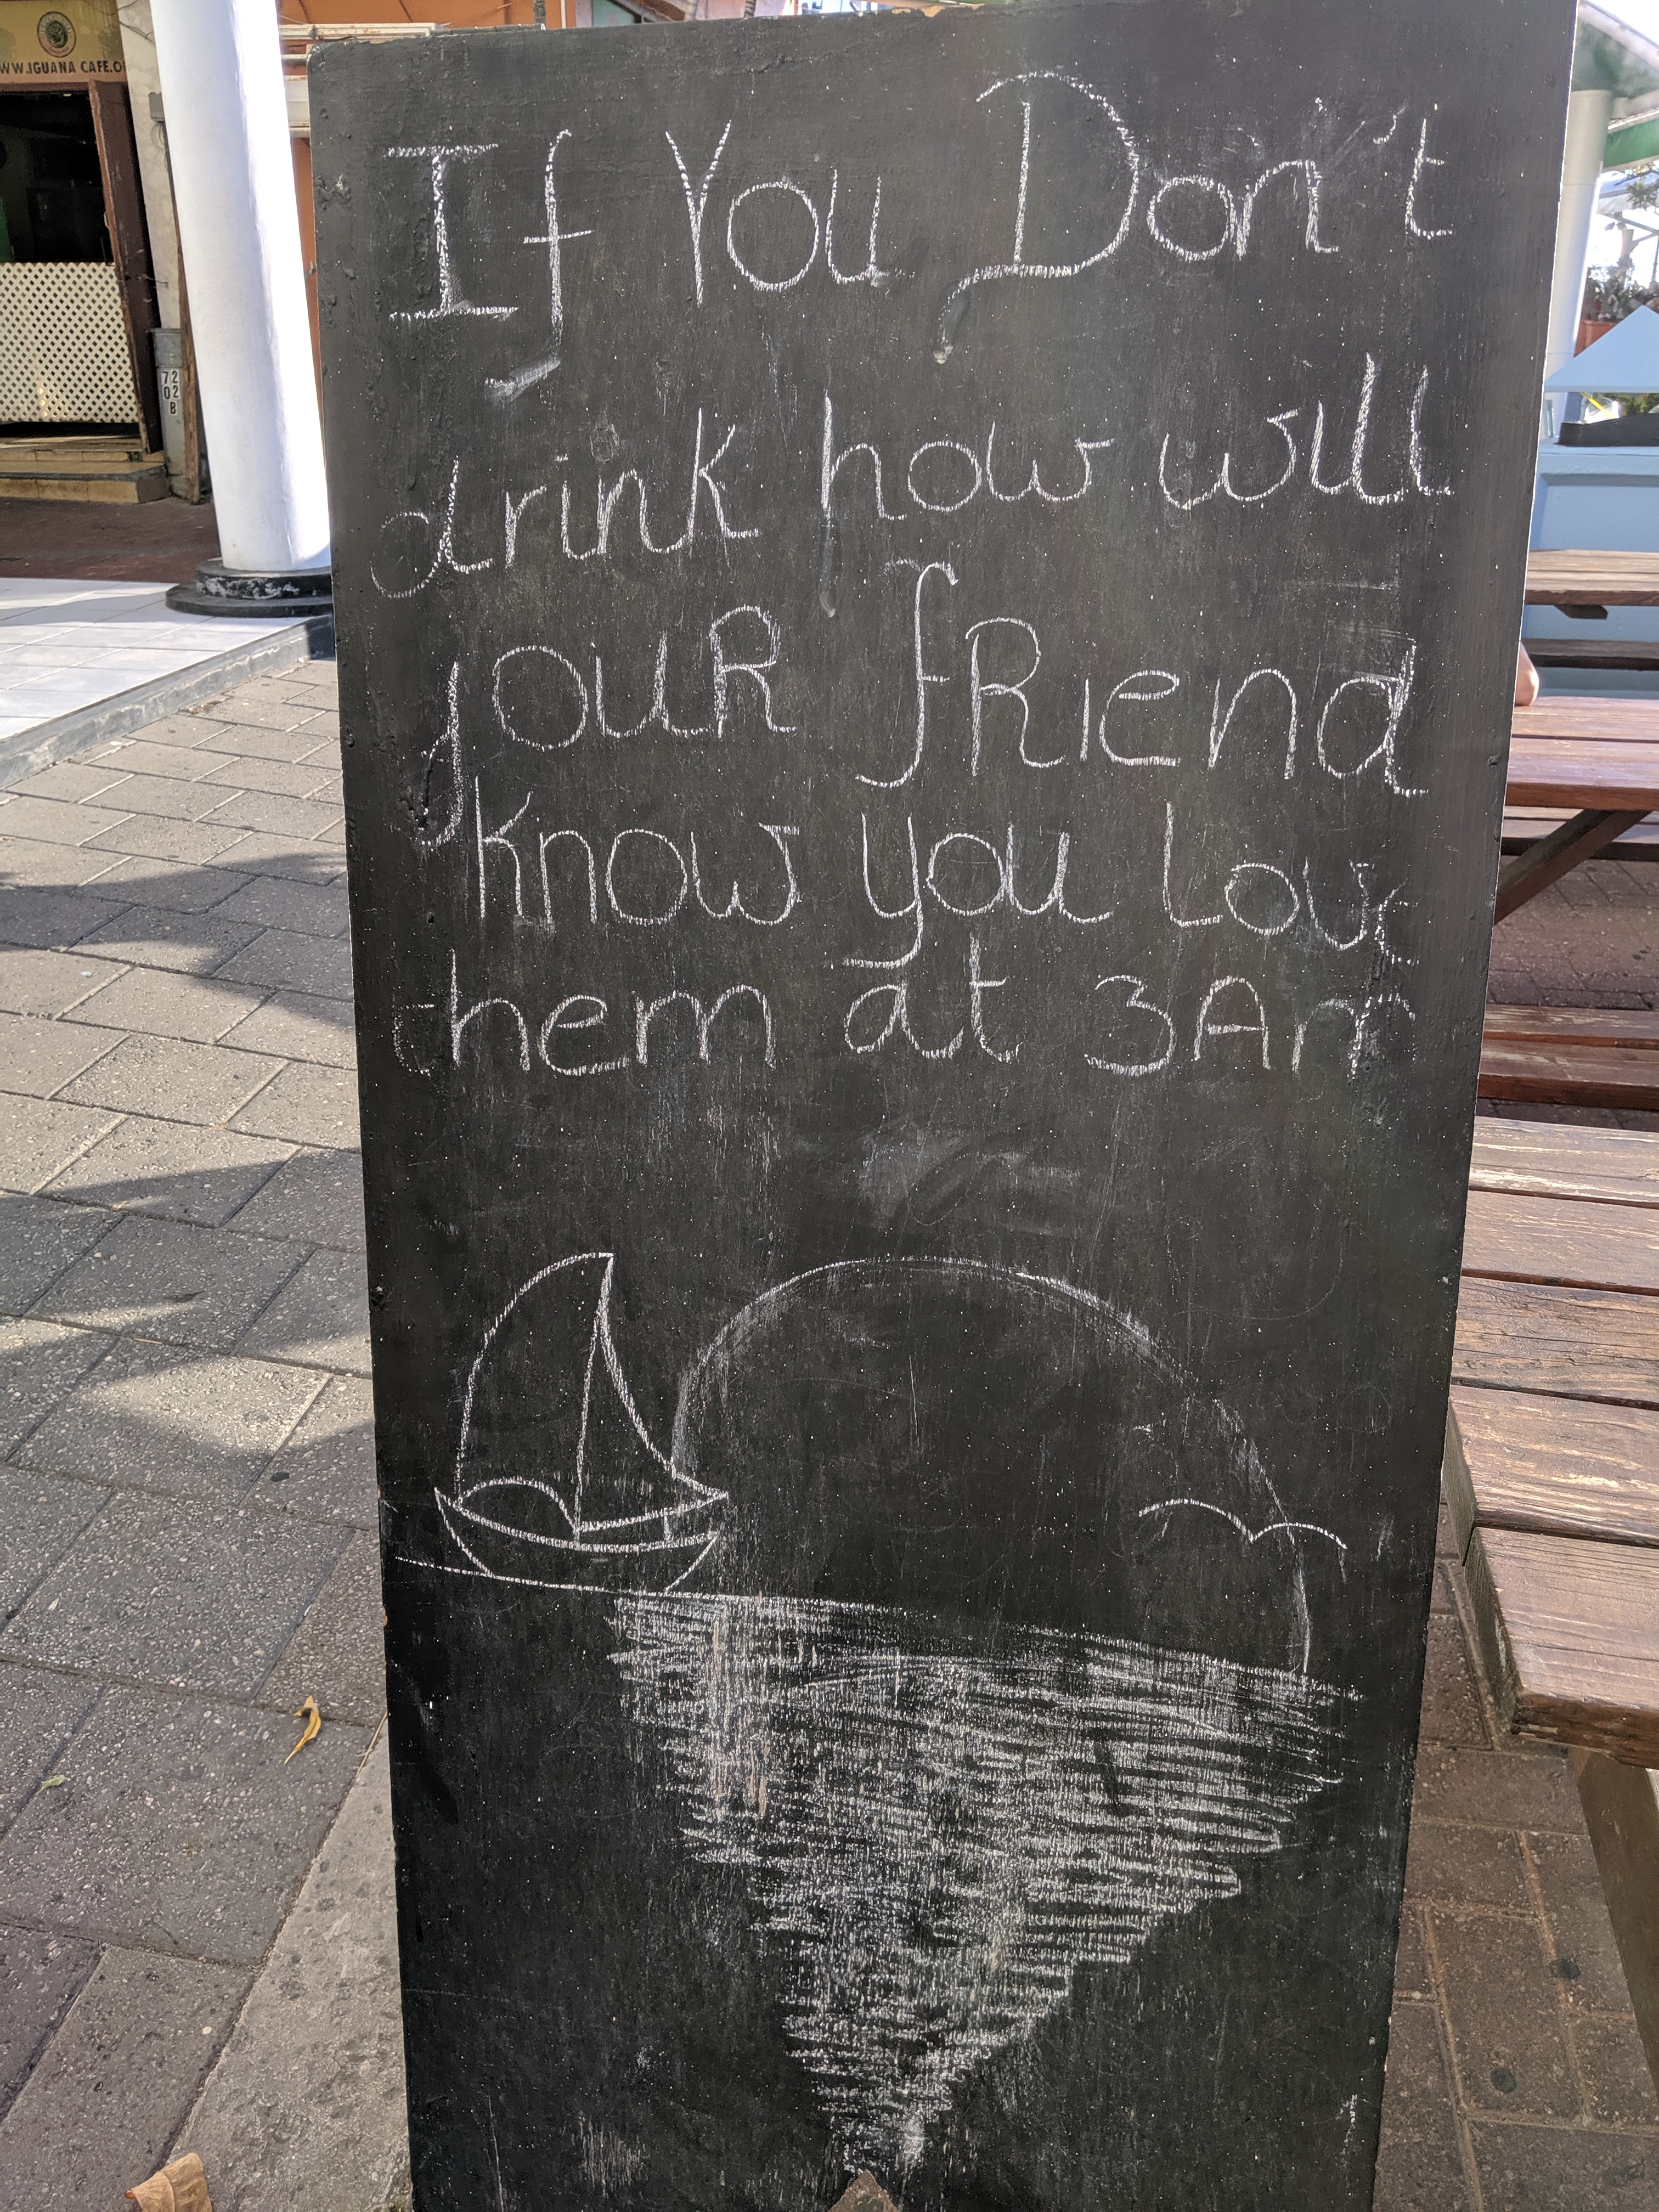 WW.IGUANA CAFE.O
72
02
B
If You Don't
drink how will
youR fRiend
know you love
them at 3Am